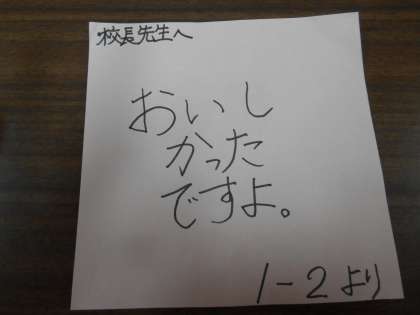 校長先生へ
おいし
かった
ですよ。
1-2より